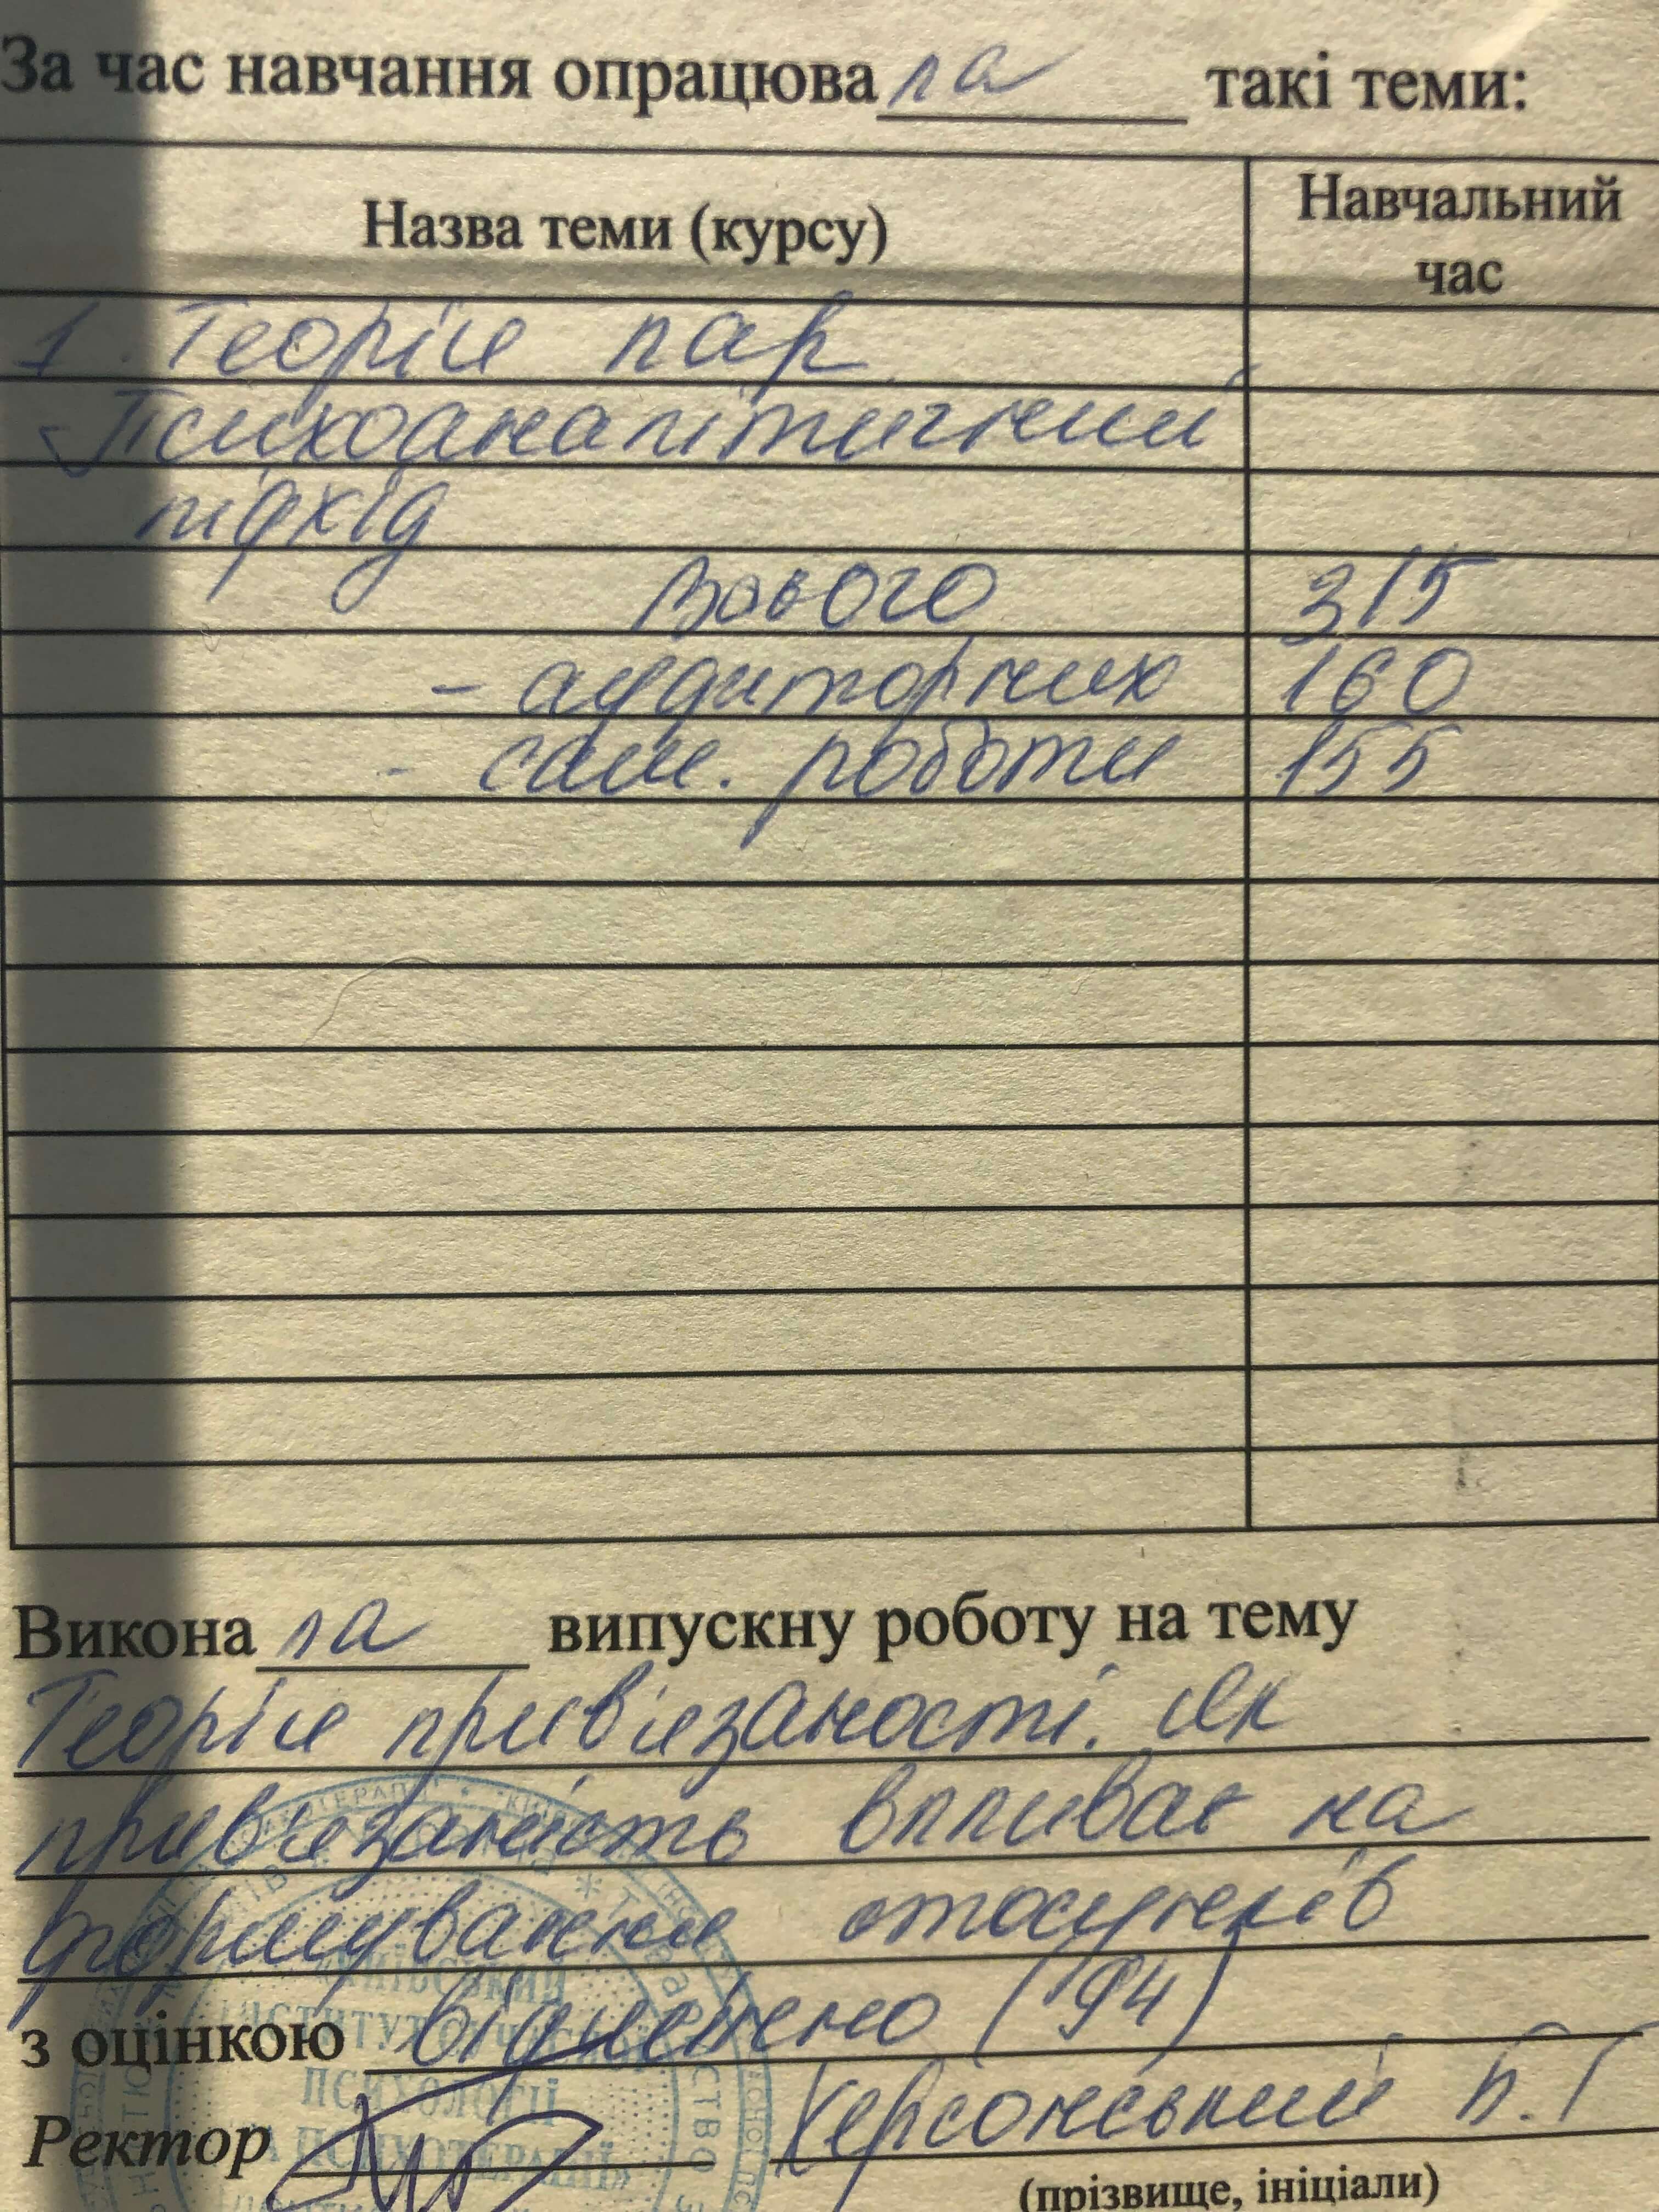 За час навчання опрацювала такі теми:
Назва теми (курсу)
Навчальний
час
1. Теорія пар
Психоаналітичний
підхід
Всього 315
- аудиторних 160
- сам. роботи 155
Викона ла випускну роботу на тему
Теорія прив'язаності. Як
прив'язаність впливає на
формування стосунків
з оцінкою відмінно (94)
Ректор Херсонський Б.Г
(прізвище, ініціали)
КИЇВСЬКИЙ
ІНСТИТУТ СУЧАСНОЇ
ПСИХОЛОГІЇ
ТА ПСИХОТЕРАПІЇ»